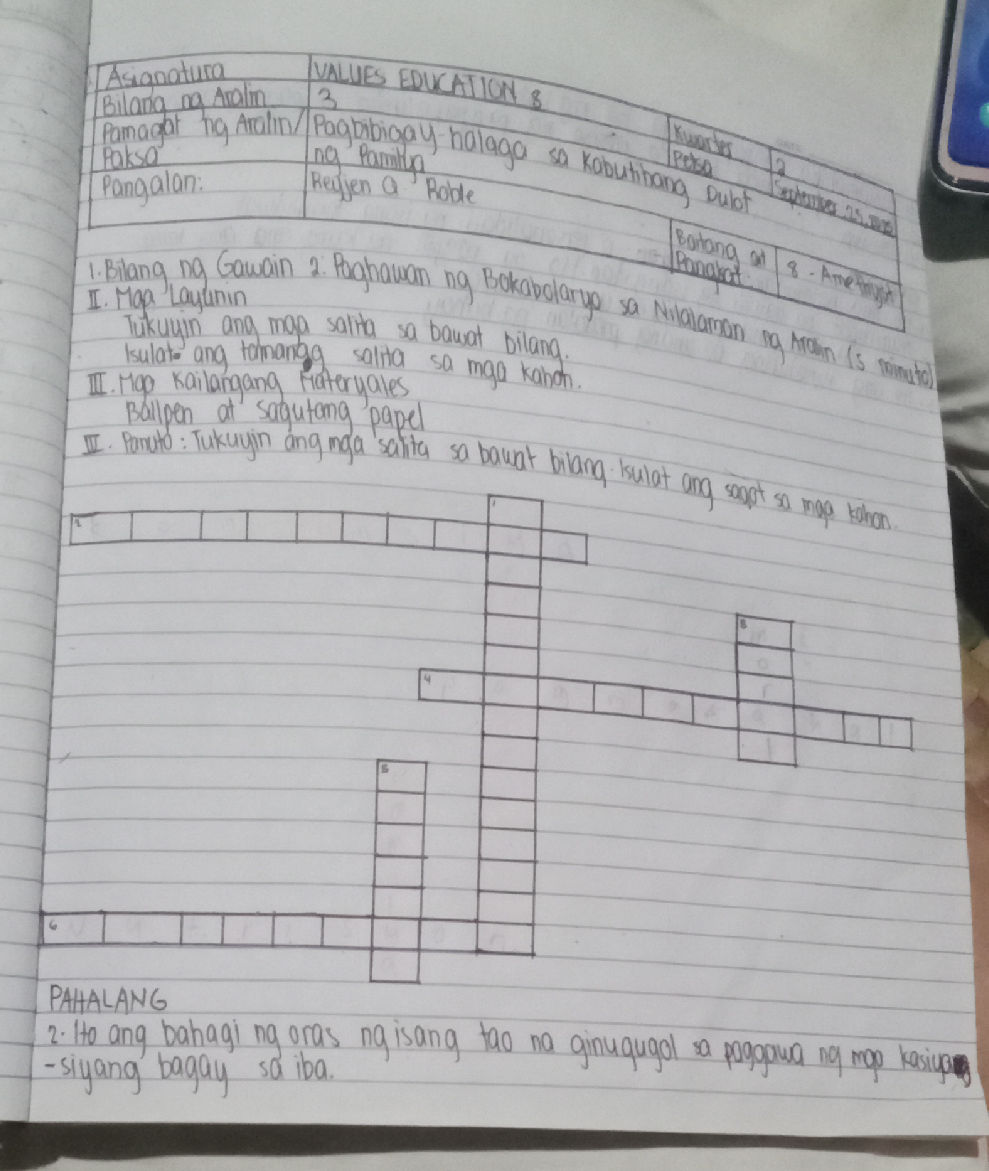 Asignatura VALUES EDUCATION 8 Kwarter 2
Bilang ng Aralin 3 Petsa September 25,
Pamagat ng Aralin/ Pagbibigay-halaga sa Kabutihang Dulot
Paksa ng Pamilya
Pangalan: Roble Baitang at 8 - Amethyst
Pangkat:
1. Bilang ng Gawain 2: Paghawan ng Bokabolaryo sa Nilalaman ng Aralin (5 minuto)
II. Mga Layunin
Tukuyin ang mga salita sa bawat bilang.
Isulat ang tamang salita sa mga kahon.
III. Mga Kailangang Materyales
Ballpen at sagutang papel
III. Panuto: Tukuyin ang mga salita sa bawat bilang. Isulat ang sagot sa mga kahon.
1
2
3
4
5
6
PAHALANG
2. Ito ang bahagi ng oras ng isang tao na ginugugol sa paggawa ng mga kasiya
-siyang bagay sa iba.